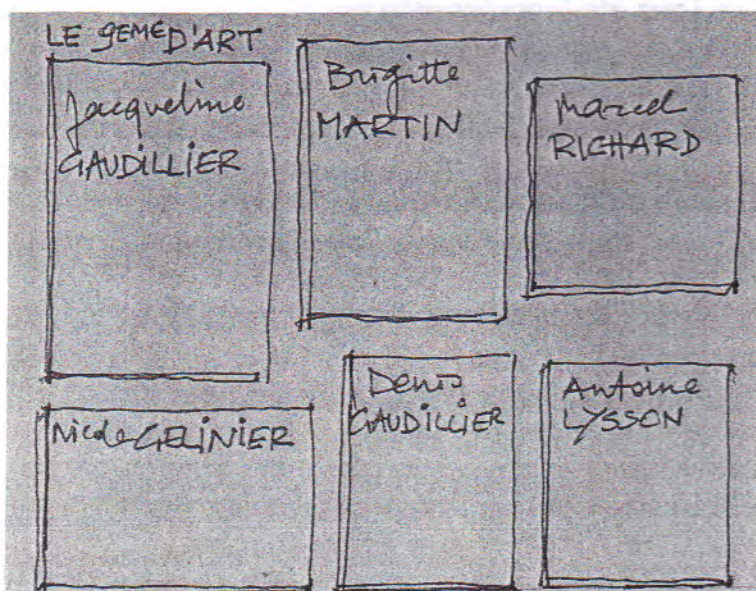 LE 9EME D'ART
Jacqueline
GAUDILLIER
Brigitte
MARTIN
Marcel
RICHARD
Nicole GELINIER
Denis
GAUDILLIER
Antoine
LYSSON